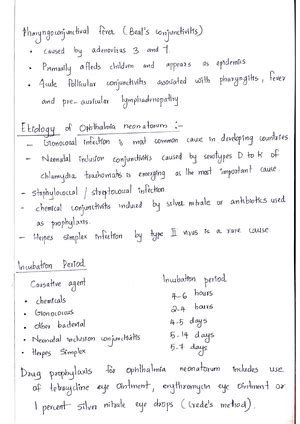 Pharyngoconjunctival fever (Beal's conjunctivitis)
• caused by adenovirus 3 and 7
• Primarily affects children and appears as epidemic
• Acute follicular conjunctivitis associated with pharyngitis, fever
and pre-auricular lymphadenopathy
Etiology of Ophthalmia neonatorum :-
- Gonococcal infection is most common cause in developing countries
- Neonatal inclusion conjunctivitis caused by serotypes D to K of
chlamydia trachomatis is emerging as the most important cause
- staphylococcal / streptococcal infection
- chemical conjunctivitis induced by silver nitrate or antibiotics used
as prophylaxis.
- Herpes simplex infection by type II virus is a rare cause
Incubation Period
Causative agent Incubation period
• chemicals 4-6 hours
• Gonococcus 2-4 hours
• other bacterial 4-5 days
• Neonatal inclusion conjunctivitis 5-14 days
• Herpes simplex 5-7 days
Drug prophylaxis for ophthalmia neonatorum includes use
of tetracycline eye ointment, erythromycin eye ointment or
1 percent silver nitrate eye drops (Crede's method).